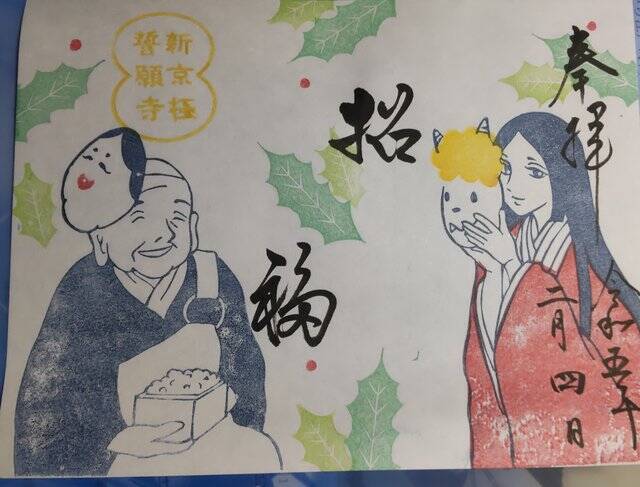 奉拝
令和五年
二月四日
招
福
新京極
誓願寺